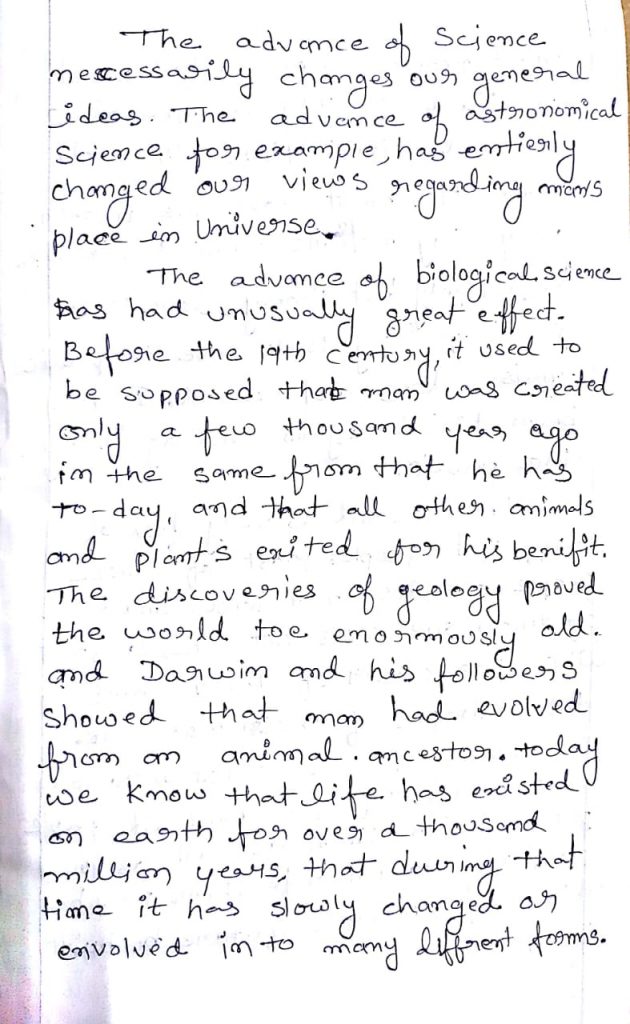 The advance of Science
nescessarily changes our general
ideas. The advance of astronomical
Science for example, has entierly
changed our views regarding man's
place in Universe.
The advance of biological science
has had unusually great effect.
Before the 19th century, it used to
be supposed that man was created
only a few thousand year ago
in the same from that he has
to-day, and that all other animals
and plants exited for his benifit.
The discoveries of geology proved
the world toe enormously old.
and Darwin and his followers
showed that man had evolved
from an animal. ancestor. today
we know that life has existed
on earth for over a thousand
million years, that during that
time it has slowly changed or
envolved in to many diffrent forms.